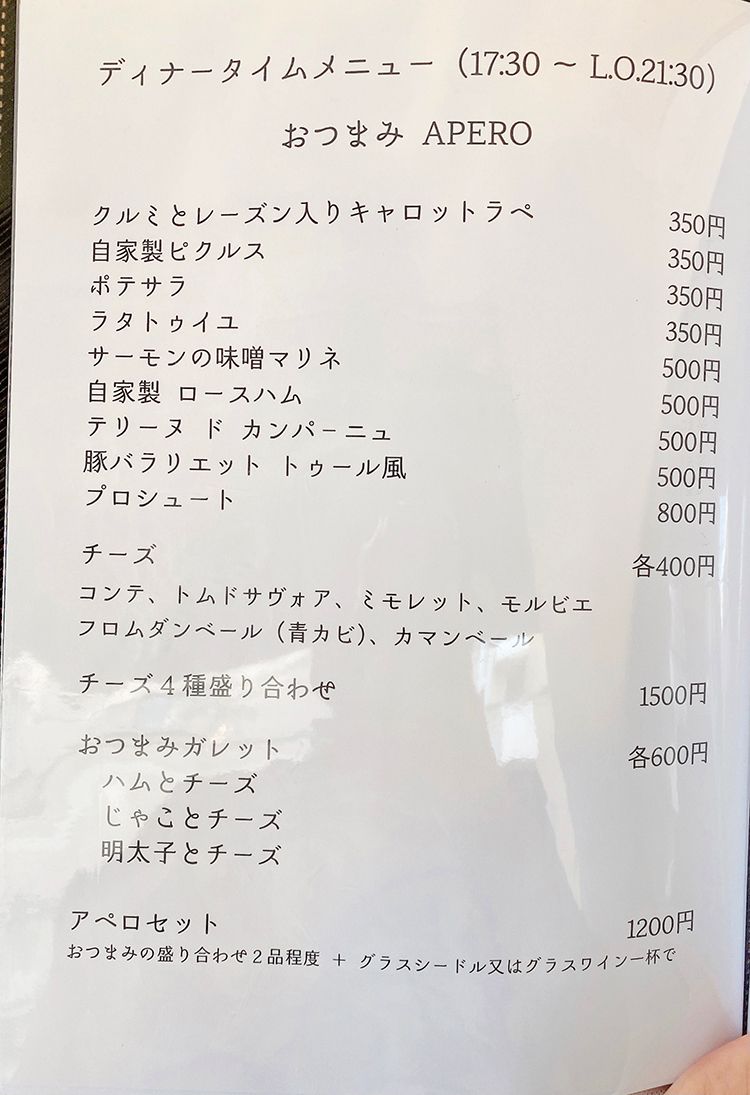 ディナータイムメニュー (17:30 ～ L.O.21:30)
おつまみ APERO
クルミとレーズン入りキャロットラペ 350円
自家製ピクルス 350円
ポテサラ 350円
ラタトゥイユ 350円
サーモンの味噌マリネ 500円
自家製 ロースハム 500円
テリーヌ ド カンパーニュ 500円
豚バラリエット トゥール風 500円
プロシュート 800円
チーズ 各400円
コンテ、トムドサヴォア、ミモレット、モルビエ
フロムダンベール (青カビ)、カマンベール
チーズ４種盛り合わせ 1500円
おつまみガレット 各600円
ハムとチーズ
じゃことチーズ
明太子とチーズ
アペロセット 1200円
おつまみの盛り合わせ２品程度 ＋ グラスシードル又はグラスワイン一杯で